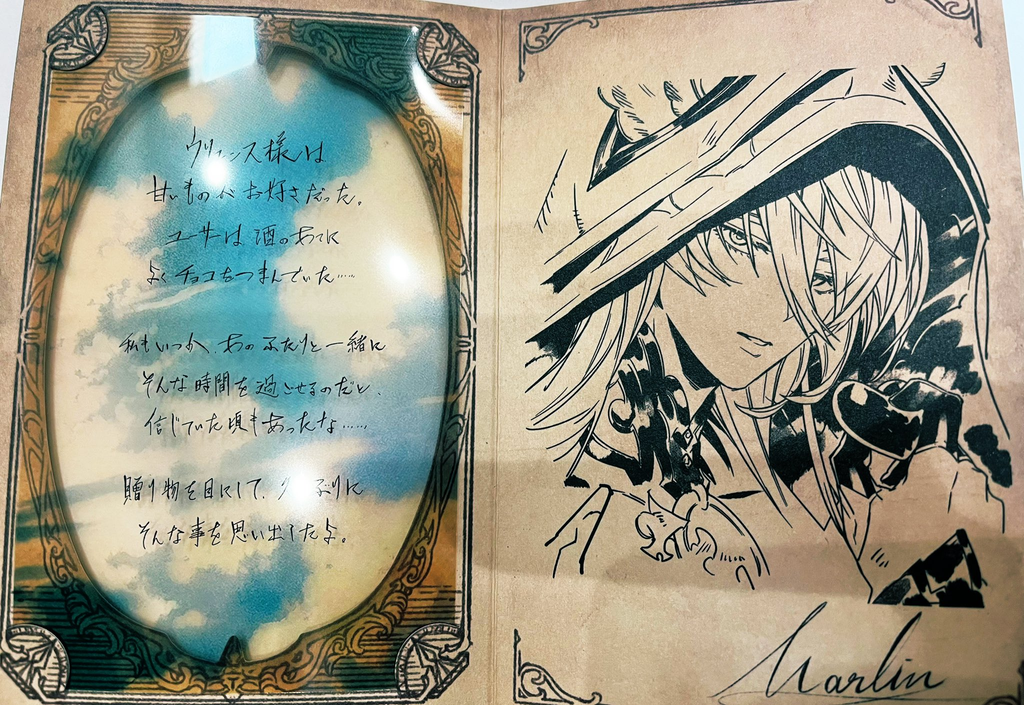 様は
甘いものがお好きだった。
ユーサーは酒のあてに
よくチョコをつまんでいた……
私もいつか、あのふたりと一緒に
そんな時間を過ごせるのだと、
信じていた頃もあったな……
贈り物を目にして、久しぶりに
そんな事を思い出したよ。
Marlin